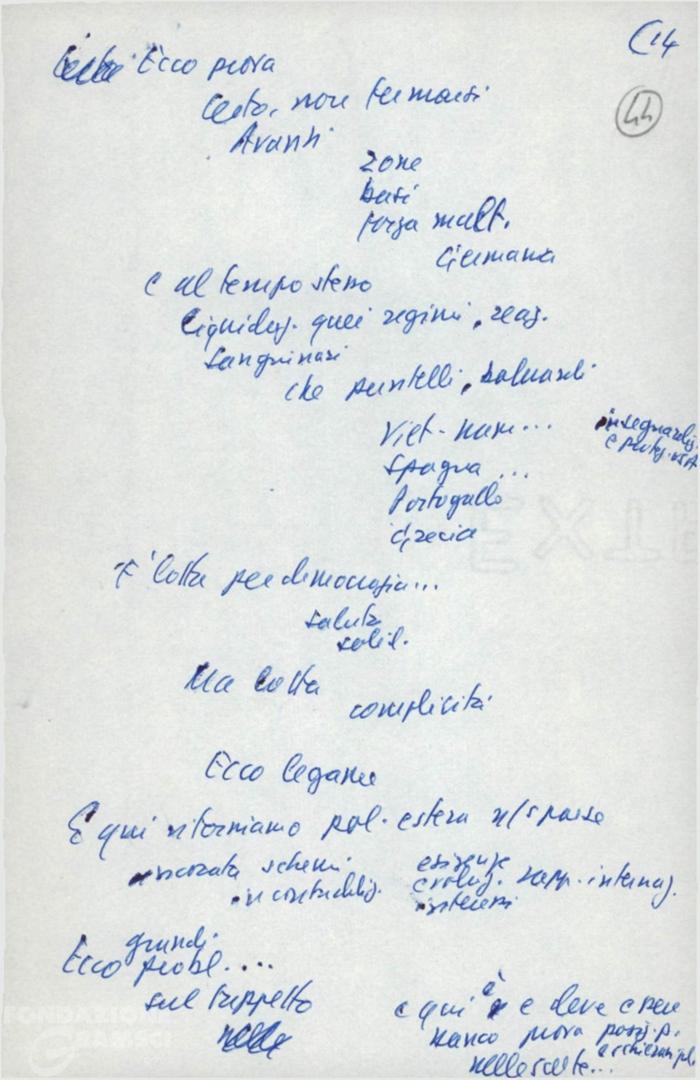 C14
44
Ecco prova
Certo, non fermarsi
Avanti
zone
basi
forza mult.
Germania
E al tempo stesso
liquidaz. quei regimi, reaz.
sanguinari
che puntelli, baluardi
Viet-nam...
insegnardiz.
e protez. USA
Spagna...
Portogallo
Grecia
E' lotta per democrazia...
saluto
solid.
Ma lotta
complicità
Ecco legame
E qui ritorniamo pol. estera n/ paese
ancorata schemi
in contraddiz.
esigenze
evoluz. rapp. internaz.
interessi
grandi
Ecco probl....
sul tappeto
e qui è e deve essere
banco prova posiz. p.
e schieram. pol.
nelle scelte...
FONDAZIONE
GRAMSCI